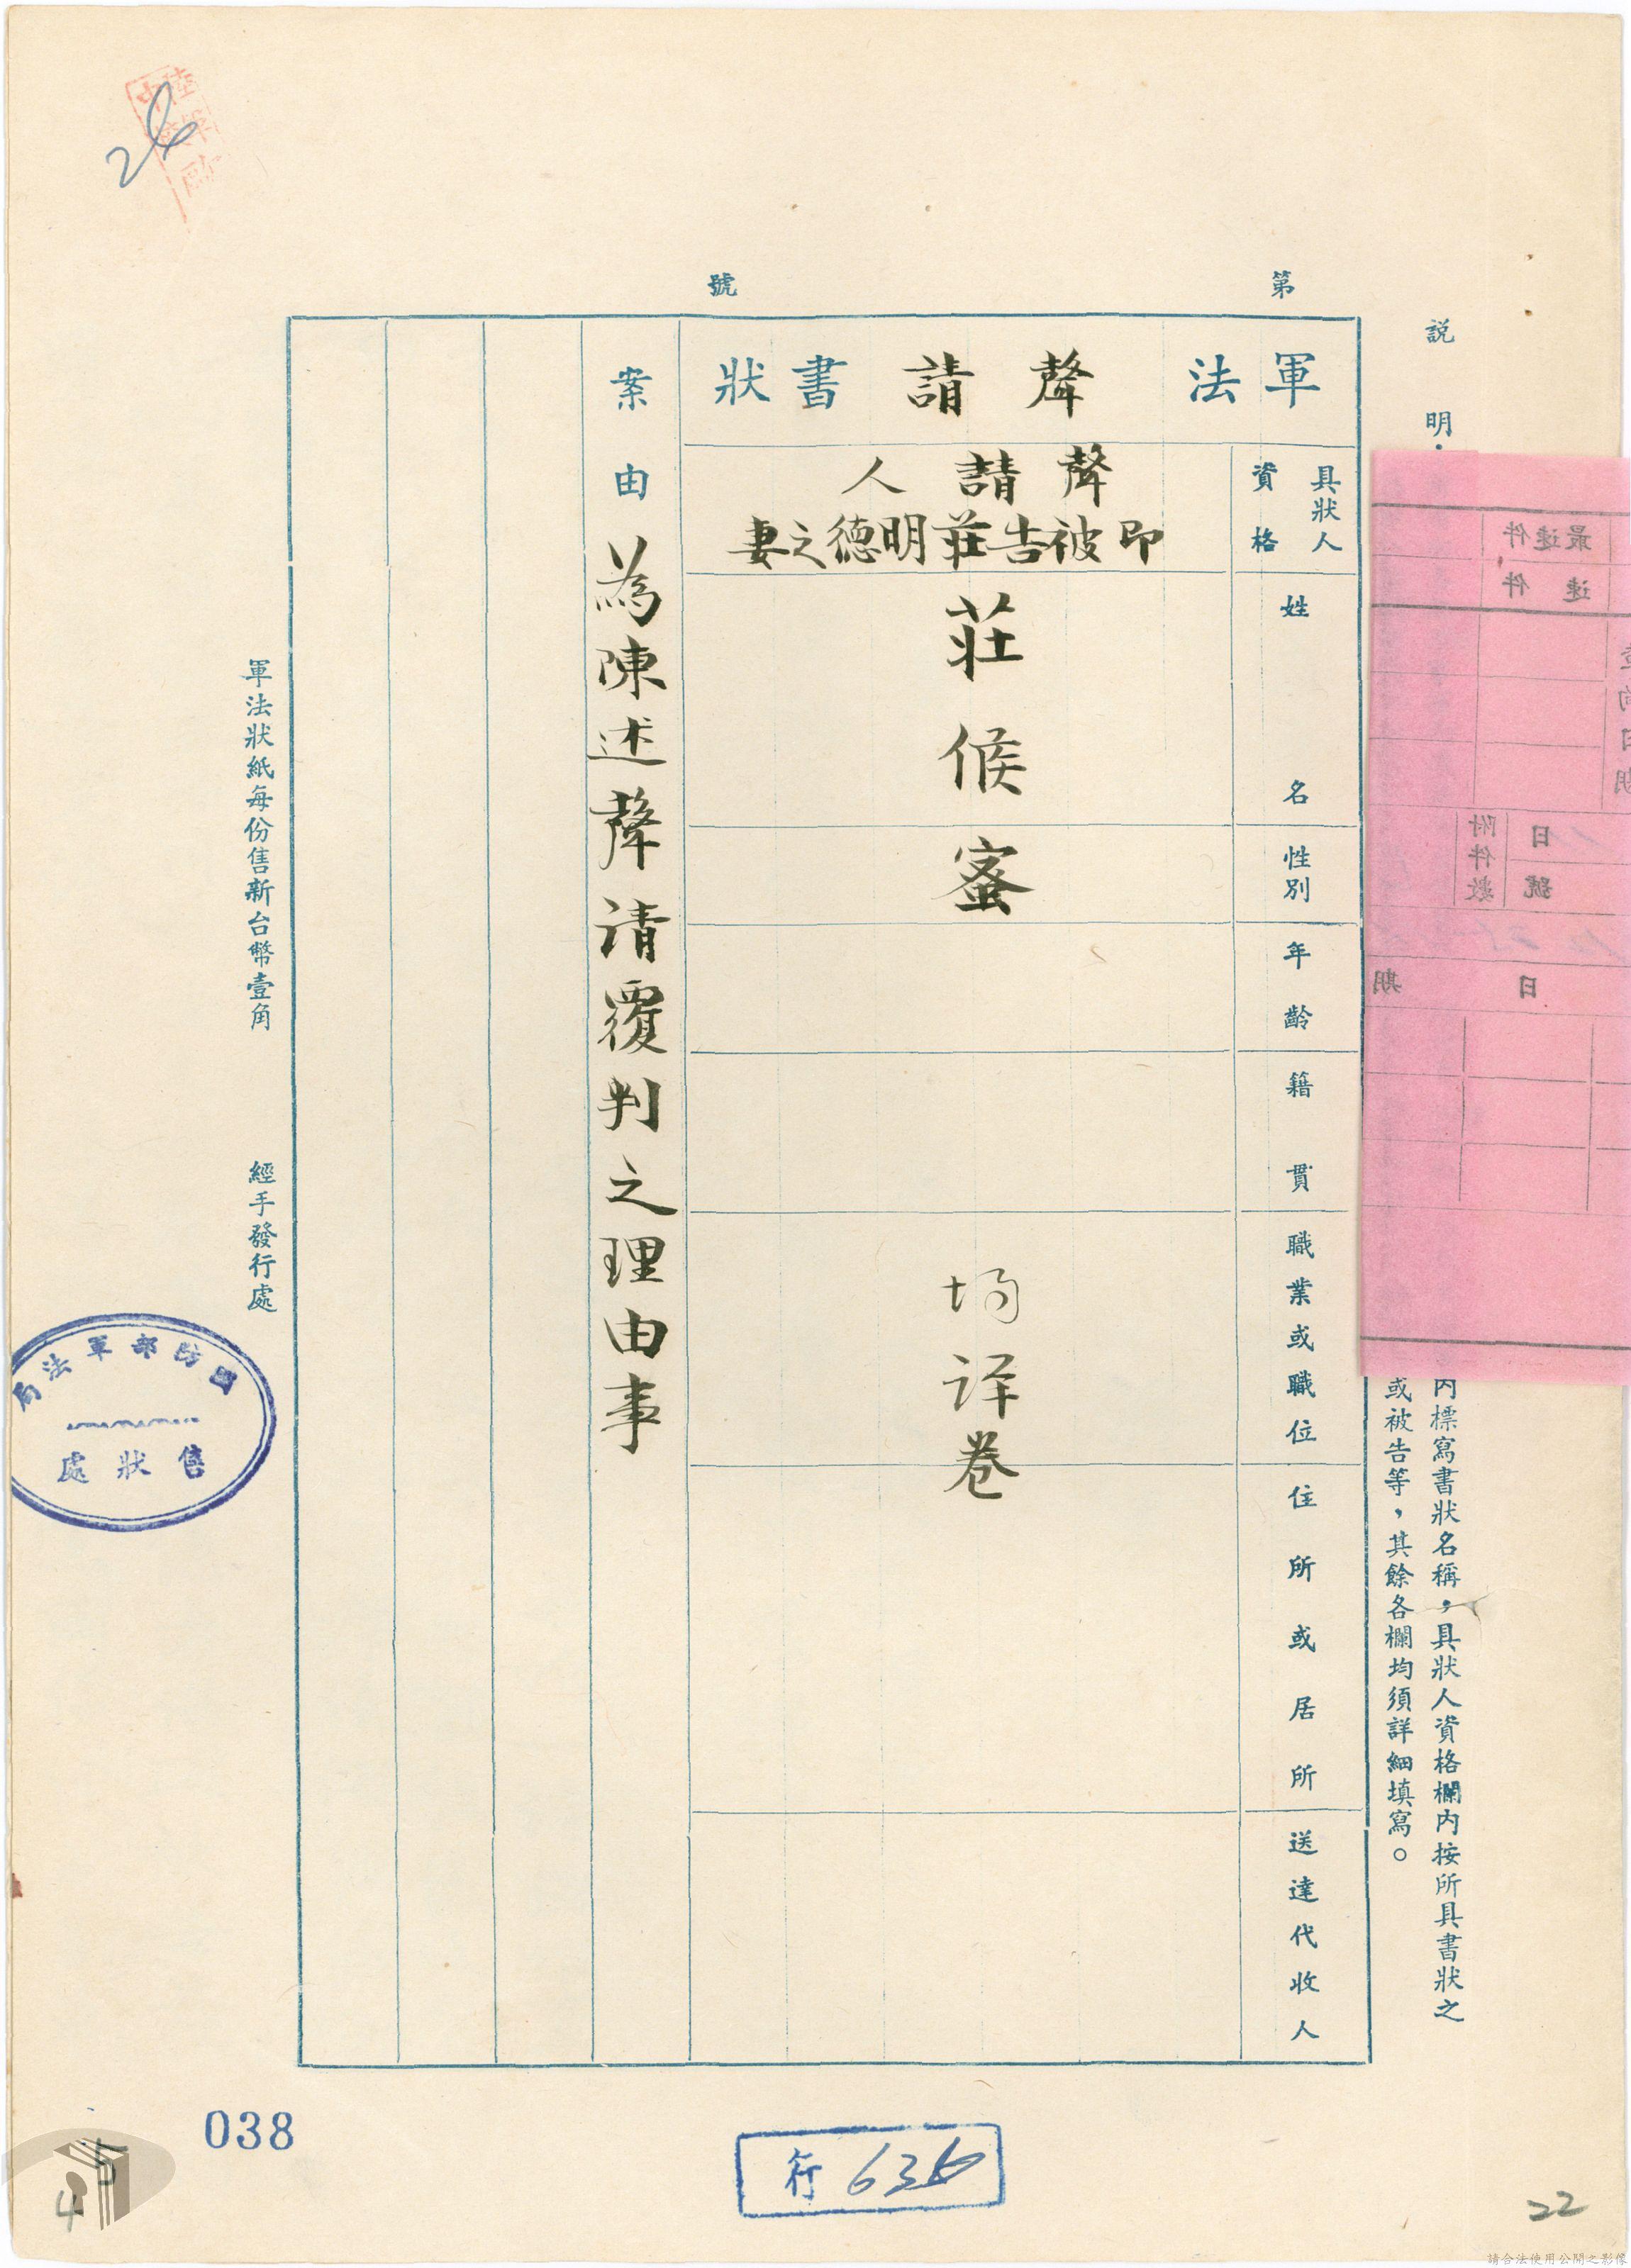 24
第　號
說明．
內標寫書狀名稱，具狀人資格欄內按所具書狀之
或被告等，其餘各欄均須詳細填寫。
最速件
速件
附件數
日
號
日期
軍法聲請書狀
具狀人資格
聲請人
即被告莊明德之妻
姓名
莊候蜜
性別
年齡
籍貫
職業或職位
均詳卷
住所或居所
送達代收人
案由
為陳述聲请覆判之理由事
軍法狀紙每份售新台幣壹角
經手發行處
國防部軍法局
售狀處
038
行 636
5
4
22
請合法使用公開之影像